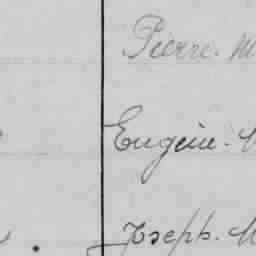 Pierre. M
Eugène.
Joseph. M